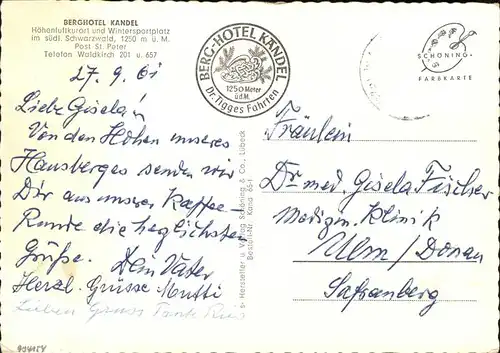 BERGHOTEL KANDEL
Höhenluftkurort und Wintersportplatz
im südl. Schwarzwald, 1250 m ü. M.
Post St. Peter
Telefon Waldkirch 201 u. 657
27. 9. 61
Liebe Gisela!
Von den Höhen unseres
Hausberges senden wir
Dir aus unserer Kaffee-
Runde die herzlichsten
Grüße. Dein Vater
Herzl. Grüsse Mutti
Lieben Gruss Tante
BERG-HOTEL KANDEL
1250 Meter
ü.d.M.
Dr. Tigges Fahrten
Hersteller u. Verlag Schöning & Co., Lübeck
Bestell-Nr. Kand
SCHÖNING
FARBKARTE
Fräulein
Dr. med. Gisela Fischer
Medizin. Klinik
Ulm/Donau
Safranberg